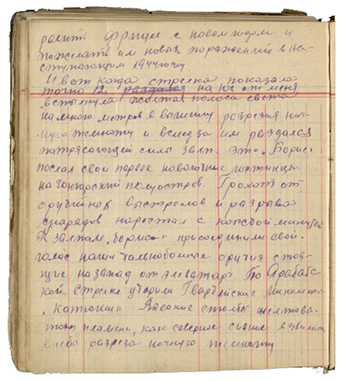 равить фрицев с новым годом и
пожелать им новых поражений в на-
ступающим 1944 году
И вот когда стрелка показала
точно 12 на юг от меня
вспыхнула полоса света
на много метров в вышину разрезая
темноту и вслед за ним раздался
потрясающий силы залп. Это "Борис"
послал свои первые новогодние гостинцы
на полуостров. Грохот от
орудийных выстрелов и разрыва
снарядов нарастал с каждой минутой
К залпам "бориса" присоединили свой
голос наши дальнобойные орудия стоя-
щие на запад от элеватора. По Арабатс-
кой стрелке ударили Гвардейские Миномёты
"катюши" Высокие столбы желтова-
того пламени, как северное сияние взвились
в небо разрезая ночную темноту